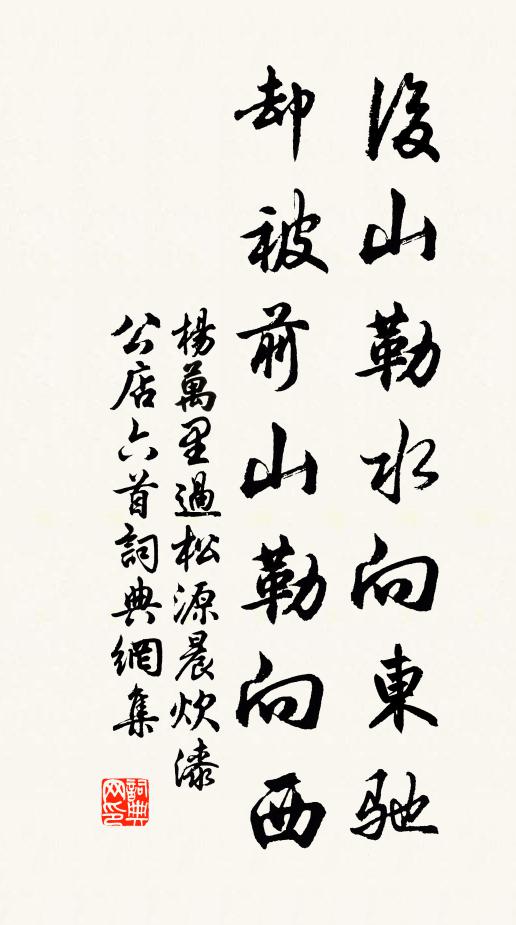 後山勒水向東馳
却被前山勒向西
楊萬里過松源晨炊漆
公店六首詞典網集
詞典网印